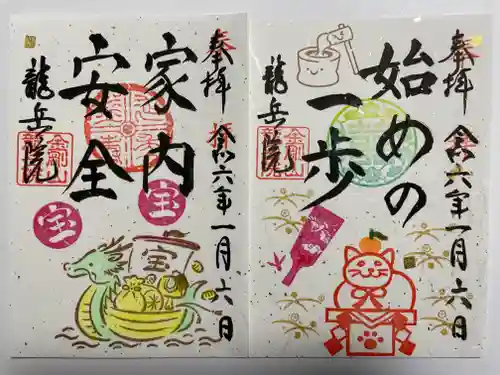 奉拝
令和六年一月六日
家内
安全
龍岳院
宝
宝
宝
奉拝
令和六年一月六日
始めの
一歩
龍岳院